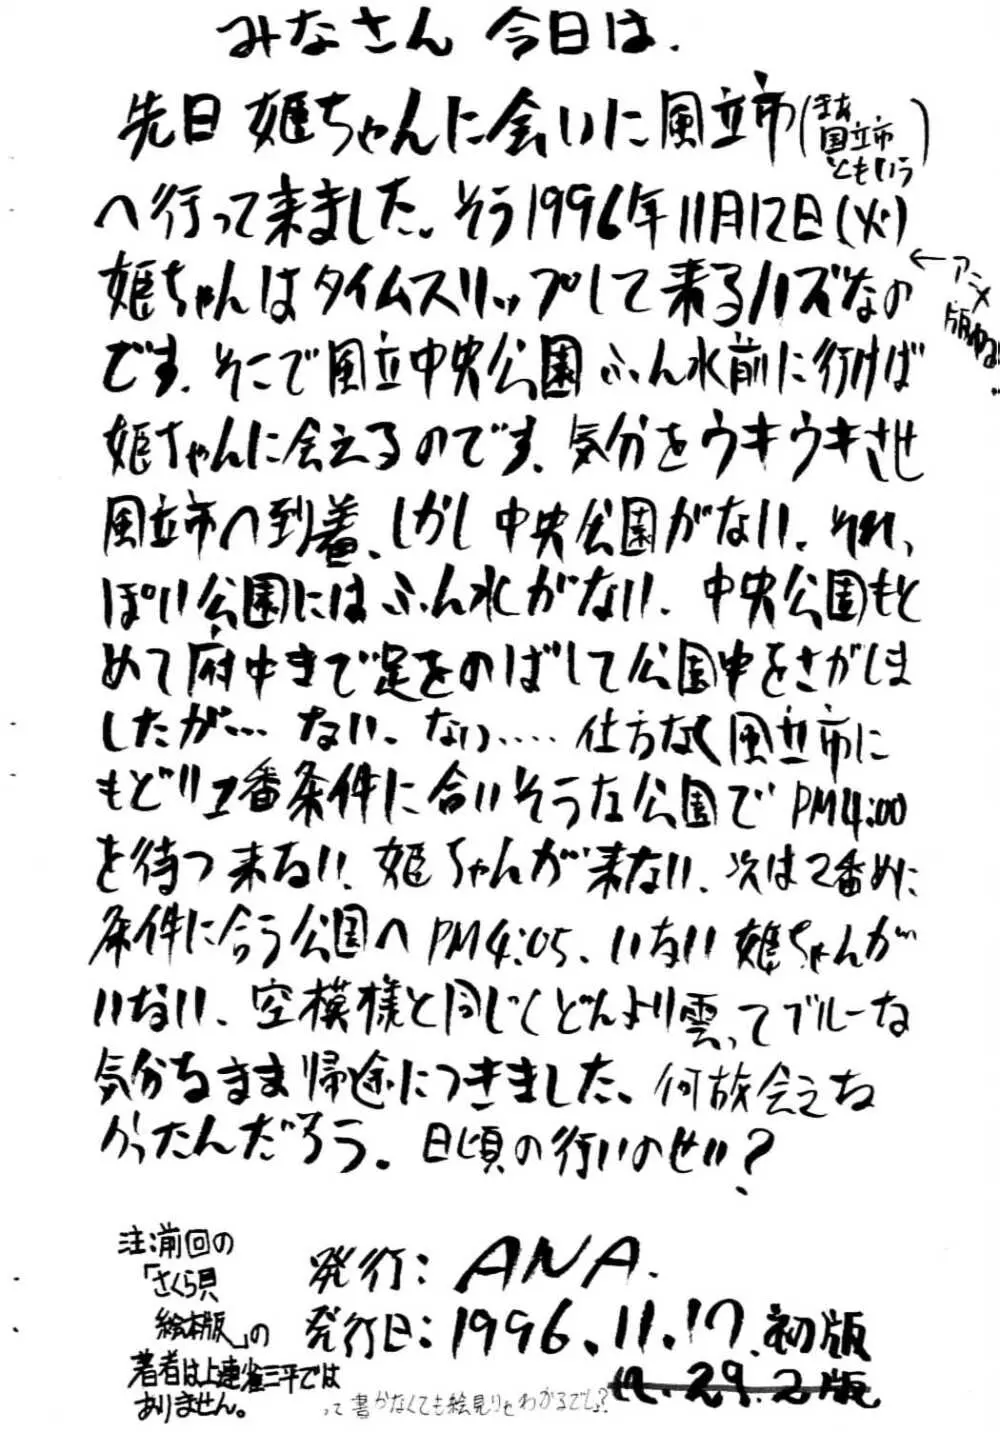 みなさん 今日は.
先日 姫ちゃんに会いに風立市(まあ国立市ともいう)
へ行って来ました。そう1996年11月12日(火)
←アニメ版ゆる!..
姫ちゃんはタイムスリップして来るハズなの
です. そこで風立中央公園 ふん水前に行けば
姫ちゃんに会えるのです. 気分をウキウキさせ
風立市へ到着、しかし中央公園がない. それ、
ぽい公園にはふん水がない. 中央公園もと
めて府中まで足をのばして公園中をさがしま
したが… ない. ない..... 仕方なく風立市に
もどり1番条件に合いそうな公園でPM4:00
を待つ来ない. 姫ちゃんが来ない. 次は2番めに
条件に合う公園へPM4:05、いない姫ちゃんが
いない. 空模様と同じくどんより雲ってブルーな
気分なまま帰途につきました。何故会えな
かったんだろう。日頃の行いのせい?
注:前回の
「さくら貝
絵本版」の
著者は上連雀三平では
ありません。
発行: ANA.
発行日: 1996.11.17.初版
12.29.2版
って書かなくても絵見りゃわかるでしょ?